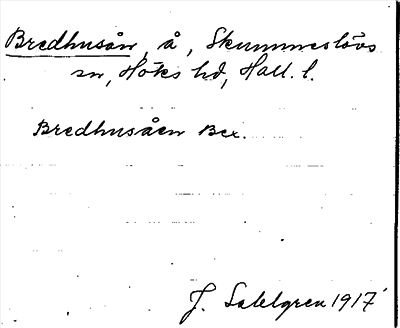 Bredhusån, å, Skummeslövs
sn, Höks hd, Hall. l.
Bredhusåen Bex.
J. Sahlgren 1917